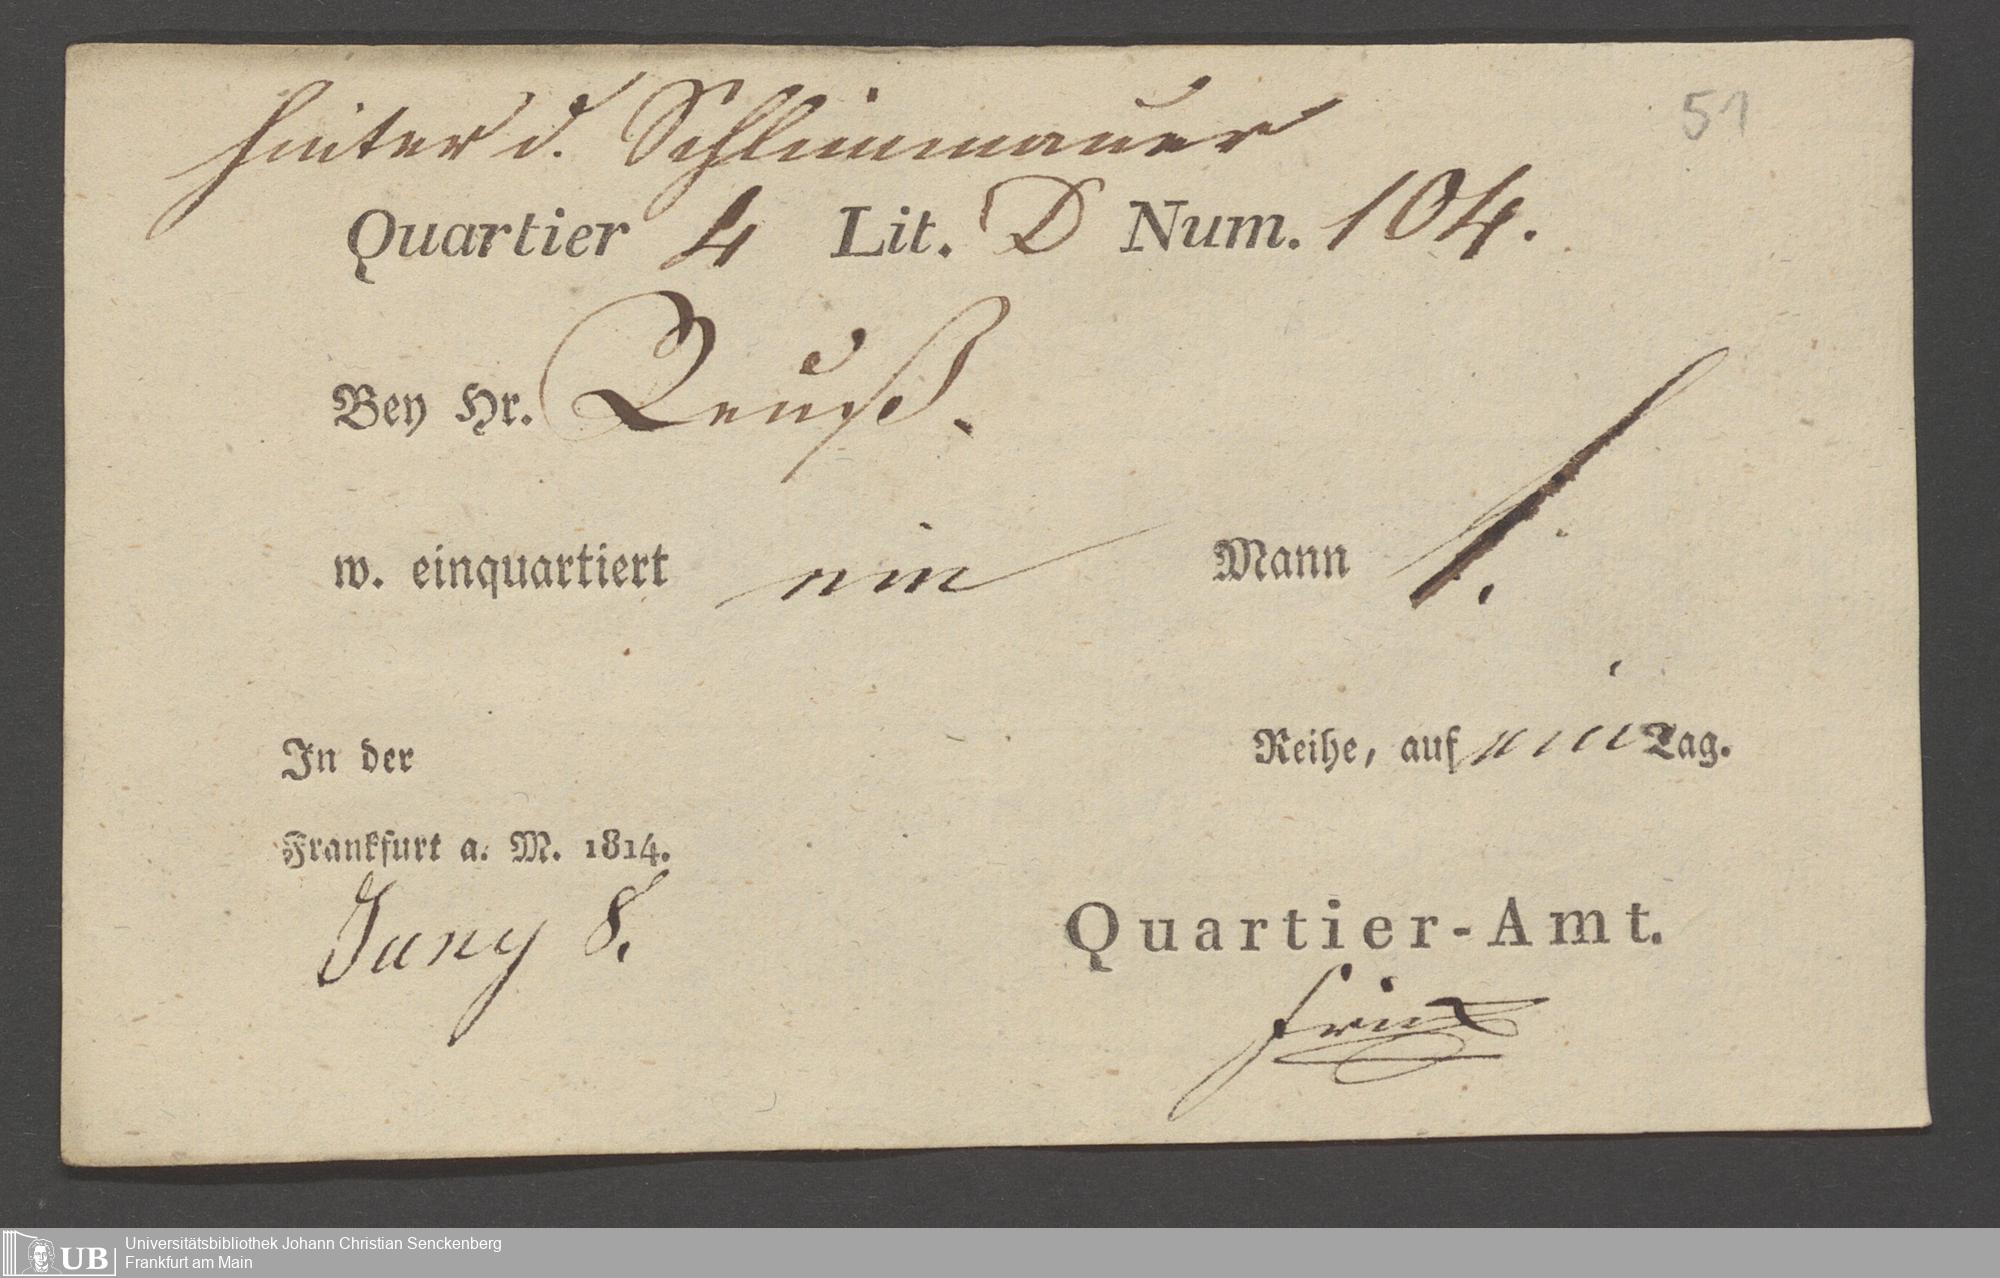 hinter d. Schlimmauer
51
Quartier 4 Lit. D Num. 104.
Bey Hr. Reuß.
w. einquartiert ein Mann 1.
In der Reihe, auf ein Tag.
Frankfurt a. M. 1814.
Juny 8.
Quartier-Amt.
UB
Universitätsbibliothek Johann Christian Senckenberg
Frankfurt am Main